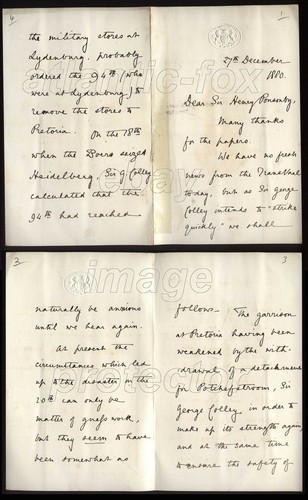 1
27th December
1880.
Dear Sir Henry Ponsonby,
Many thanks
for the papers.
We have no fresh
news from the Transvaal
today, but as Sir George
Colley intends to "strike
quickly" we shall
naturally be anxious
until we hear again.
At present the
circumstances which led
up to the disaster on the
20th can only be
matter of guess work,
but they seem to have
been somewhat as
3
follows - The garrison
at Pretoria having been
weakened by the with-
drawal of a detachment
for Potchefstroom, Sir
George Colley, in order to
make up its strength again
and at the same time
to ensure the safety of
4
the military stores at
Lydenburg, probably
ordered the 94th (who
were at Lydenburg) to
remove the stores to
Pretoria. On the 18th
when the Boers seized
Heidelberg, Sir G. Colley
calculated that the
94th had reached
image